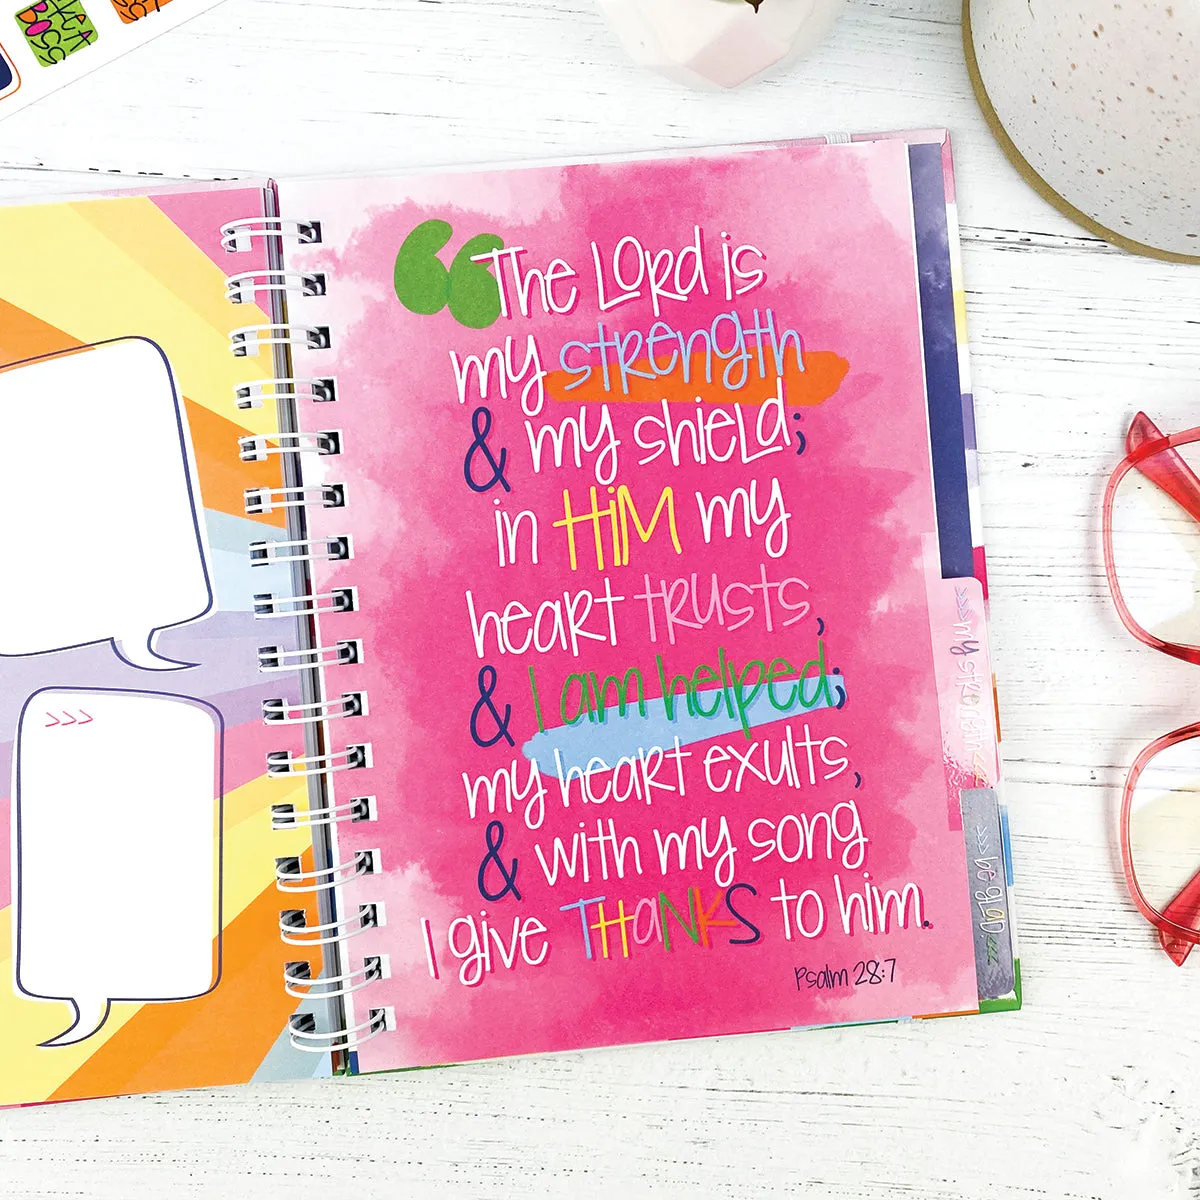 >>>
“The Lord is
my strength
& my shield;
in HiM my
heart trusts,
& I am helped;
my heart exults,
& with my song
I give THaNKS to him.
Psalm 28:7
>>>my strength<<<
>>>be glad<<<
BOSS